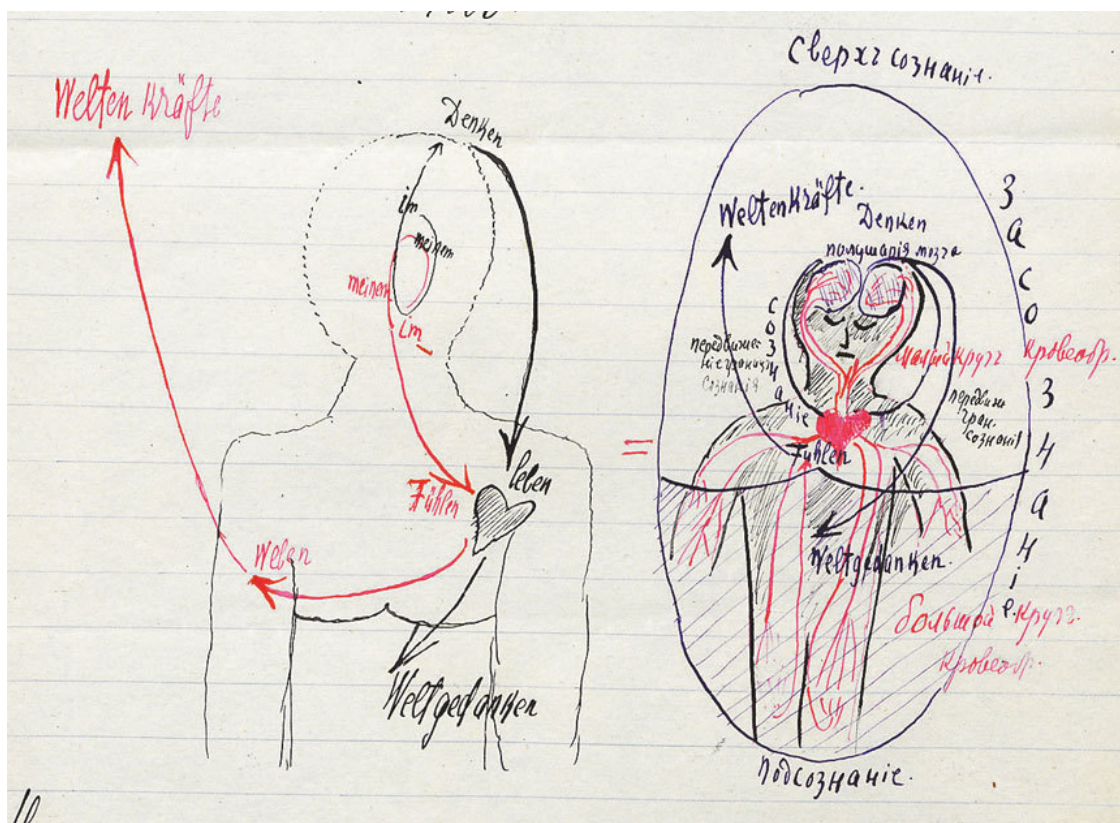 Welten Kräfte
Denken
im
meinem
meinem
Im
Fühlen
leben
Weben
Weltgedanken
=
Сверхъ сознанiе.
Weltenkräfte.
Denken
полушарiя мозга
сознанiе
передвиже-
нiе границы
сознанiя
Малый кругъ кровеобр.
передвиж.
гран.
сознанiя
Fühlen
Weltgedanken.
За сознанiе.
большой кругъ.
кровеобр.
подсознанiе.